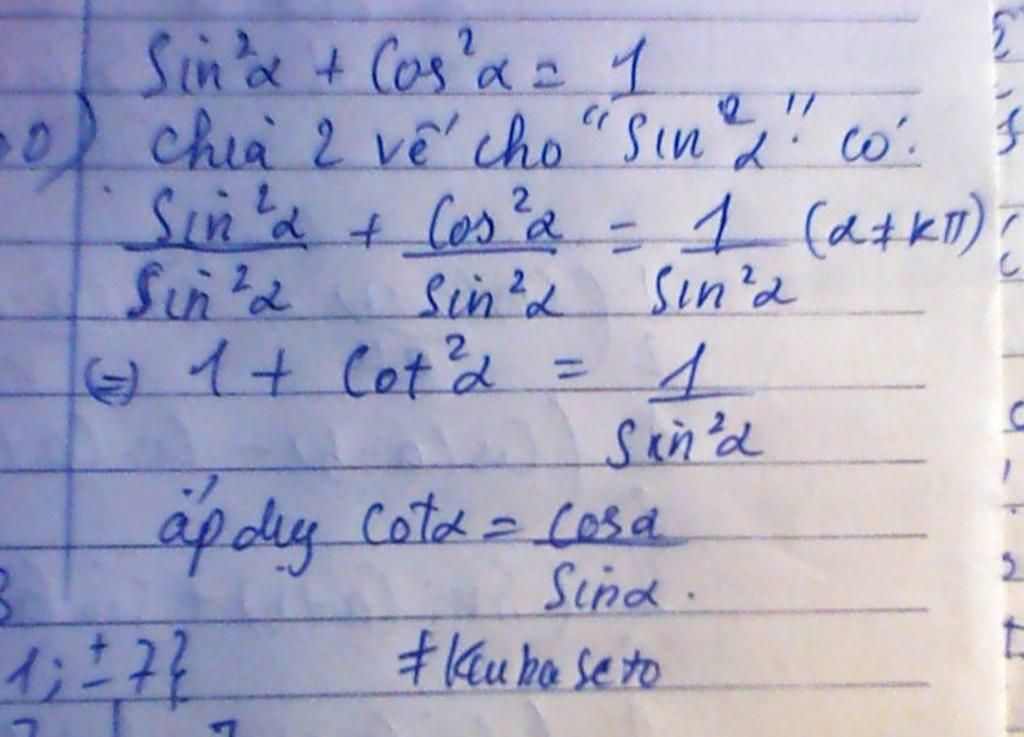 Sin²α + Cos²α = 1
chia 2 vế cho "Sin²α" có:
Sin²α/Sin²α + Cos²α/Sin²α = 1/Sin²α (α ≠ kπ)
(=) 1 + Cot²α = 1/Sin²α
áp dụg Cotα = Cosα/Sinα.
1; ± 7}